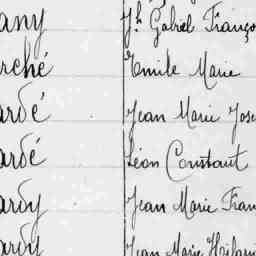 any Jh Gabriel Franço
rché Emile Marie
ardé Jean Marie Jose
ardé Léon Constant
ardy Jean Marie Fran
ardy Jean Marie Hilari